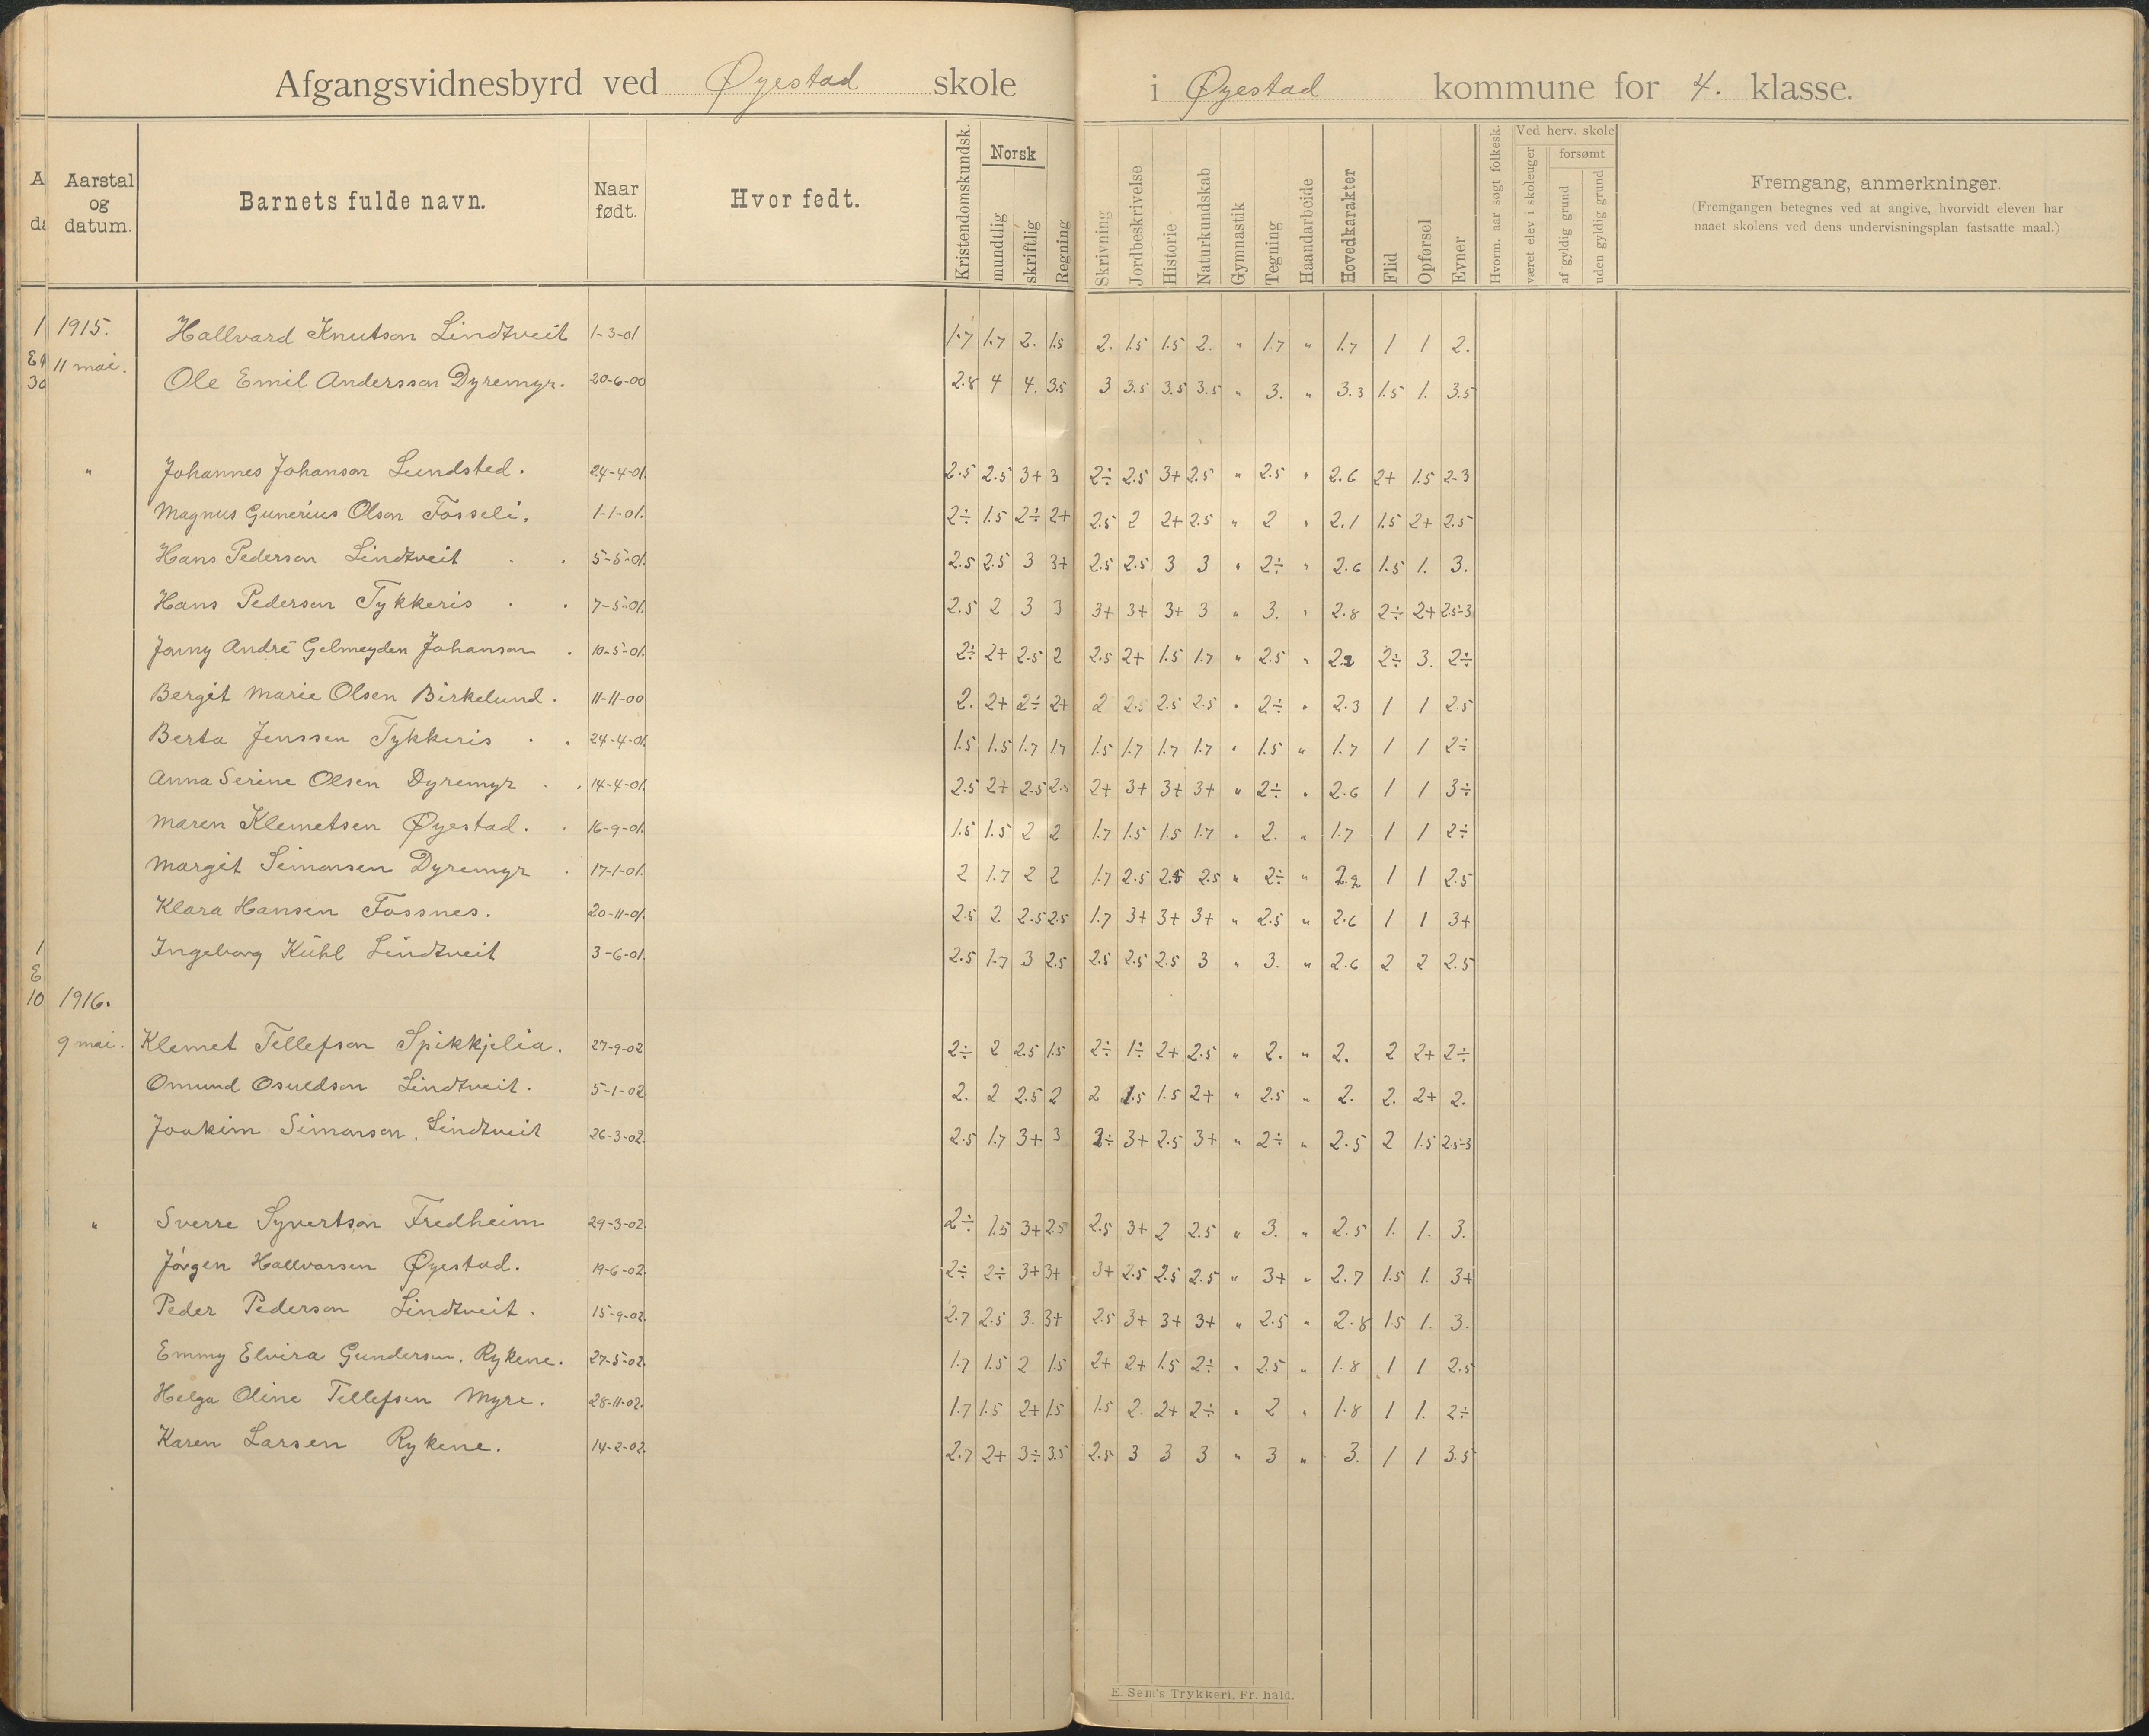 Afgangsvidnesbyrd ved Øyestad skole i Øyestad kommune for 4. klasse.
Aarstal og datum. Barnets fulde navn. Naar født. Hvor født. Kristendomskundsk. Norsk mundtlig skriftlig Regning Skrivning Jordbeskrivelse Historie Naturkundskab Gymnastik Tegning Haandarbeide Hovedkarakter Flid Opførsel Evner Hvorm. aar søgt folkesk. Ved herv. skole været elev i skoleuger forsømt af gyldig grund uden gyldig grund Fremgang, anmerkninger.
(Fremgangen betegnes ved at angive, hvorvidt eleven har
naaet skolens ved dens undervisningsplan fastsatte maal.)
1915. Hallvard Knutson Lindtveit 1-3-01 1.7 1.7 2. 1.5 2. 1.5 1.5 2. " 1.7 " 1.7 1 1 2.
11 mai. Ole Emil Andersson Dyremyr. 20-6-00 2.8 4 4. 3.5 3 3.5 3.5 3.5 " 3. " 3.3 1.5 1. 3.5
" Johannes Johanson Lundsted. 24-4-01. 2.5 2.5 3+ 3 2÷ 2.5 3+ 2.5 " 2.5 " 2.6 2+ 1.5 2-3
Magnus Gunerius Olson Fosseli. 1-1-01. 2÷ 1.5 2÷ 2+ 2.5 2 2+ 2.5 " 2 " 2.1 1.5 2+ 2.5
Hans Pederson Lindtveit 5-5-01. 2.5 2.5 3 3+ 2.5 2.5 3 3 " 2÷ " 2.6 1.5 1. 3.
Hans Pederson Tykkeris 7-5-01. 2.5 2 3 3 3+ 3+ 3+ 3 " 3. " 2.8 2÷ 2+ 2.5-3
Jonny André Gelmeyden Johanson 10-5-01. 2÷ 2+ 2.5 2 2.5 2+ 1.5 1.7 " 2.5 " 2.2 2÷ 3. 2÷
Bergit Marie Olsen Birkelund. 11-11-00 2. 2+ 2÷ 2+ 2 2.5 2.5 2.5 " 2÷ " 2.3 1 1 2.5
Berta Jenssen Tykkeris 24-4-01. 1.5 1.5 1.7 1.7 1.5 1.7 1.7 1.7 " 1.5 " 1.7 1 1 2÷
Anna Serine Olsen Dyremyr 14-4-01. 2.5 2+ 2.5 2.5 2+ 3+ 3+ 3+ " 2÷ " 2.6 1 1 3÷
Maren Klemetsen Øyestad. 16-9-01. 1.5 1.5 2 2 1.7 1.5 1.5 1.7 " 2. " 1.7 1 1 2÷
Margit Simonsen Dyremyr 17-1-01. 2 1.7 2 2 1.7 2.5 2.5 2.5 " 2÷ " 2.2 1 1 2.5
Klara Hansen Fossnes. 20-11-01. 2.5 2 2.5 2.5 1.7 3+ 3+ 3+ " 2.5 " 2.6 1 1 3+
Ingeborg Kühl Lindtveit 3-6-01. 2.5 1.7 3 2.5 2.5 2.5 2.5 3 " 3. " 2.6 2 2 2.5
1916.
9 mai. Klemet Tellefson Spikkjelia. 27-9-02 2÷ 2 2.5 1.5 2÷ 1÷ 2+ 2.5 " 2. " 2. 2 2+ 2÷
Omund Osuldson Lindtveit. 5-1-02 2. 2 2.5 2 2 1.5 1.5 2+ " 2.5 " 2. 2. 2+ 2.
Joakim Simonson. Lindtveit 26-3-02. 2.5 1.7 3+ 3 2÷ 3+ 2.5 3+ " 2÷ " 2.5 2 1.5 2.5-3
" Sverre Syvertson Fredheim 29-3-02. 2÷ 1.5 3+ 2.5 2.5 3+ 2 2.5 " 3. " 2.5 1. 1. 3.
Jørgen Hallvorsen Øyestad. 19-6-02. 2÷ 2÷ 3+ 3+ 3+ 2.5 2.5 2.5 " 3+ " 2.7 1.5 1. 3+
Peder Pederson Lindtveit. 15-9-02. 2.7 2.5 3. 3+ 2.5 3+ 3+ 3+ " 2.5 " 2.8 1.5 1. 3.
Emmy Elvira Gundersen. Rykene. 27-5-02. 1.7 1.5 2 1.5 2+ 2+ 1.5 2÷ " 2.5 " 1.8 1 1 2.5
Helga Oline Tellefsen Myre. 28-11-02. 1.7 1.5 2+ 1.5 1.5 2. 2+ 2÷ " 2 " 1.8 1 1. 2÷
Karen Larsen Rykene. 14-2-02. 2.7 2+ 3÷ 3.5 2.5 3 3 3 " 3 " 3. 1 1 3.5
E. Sem's Trykkeri, Fr. hald.